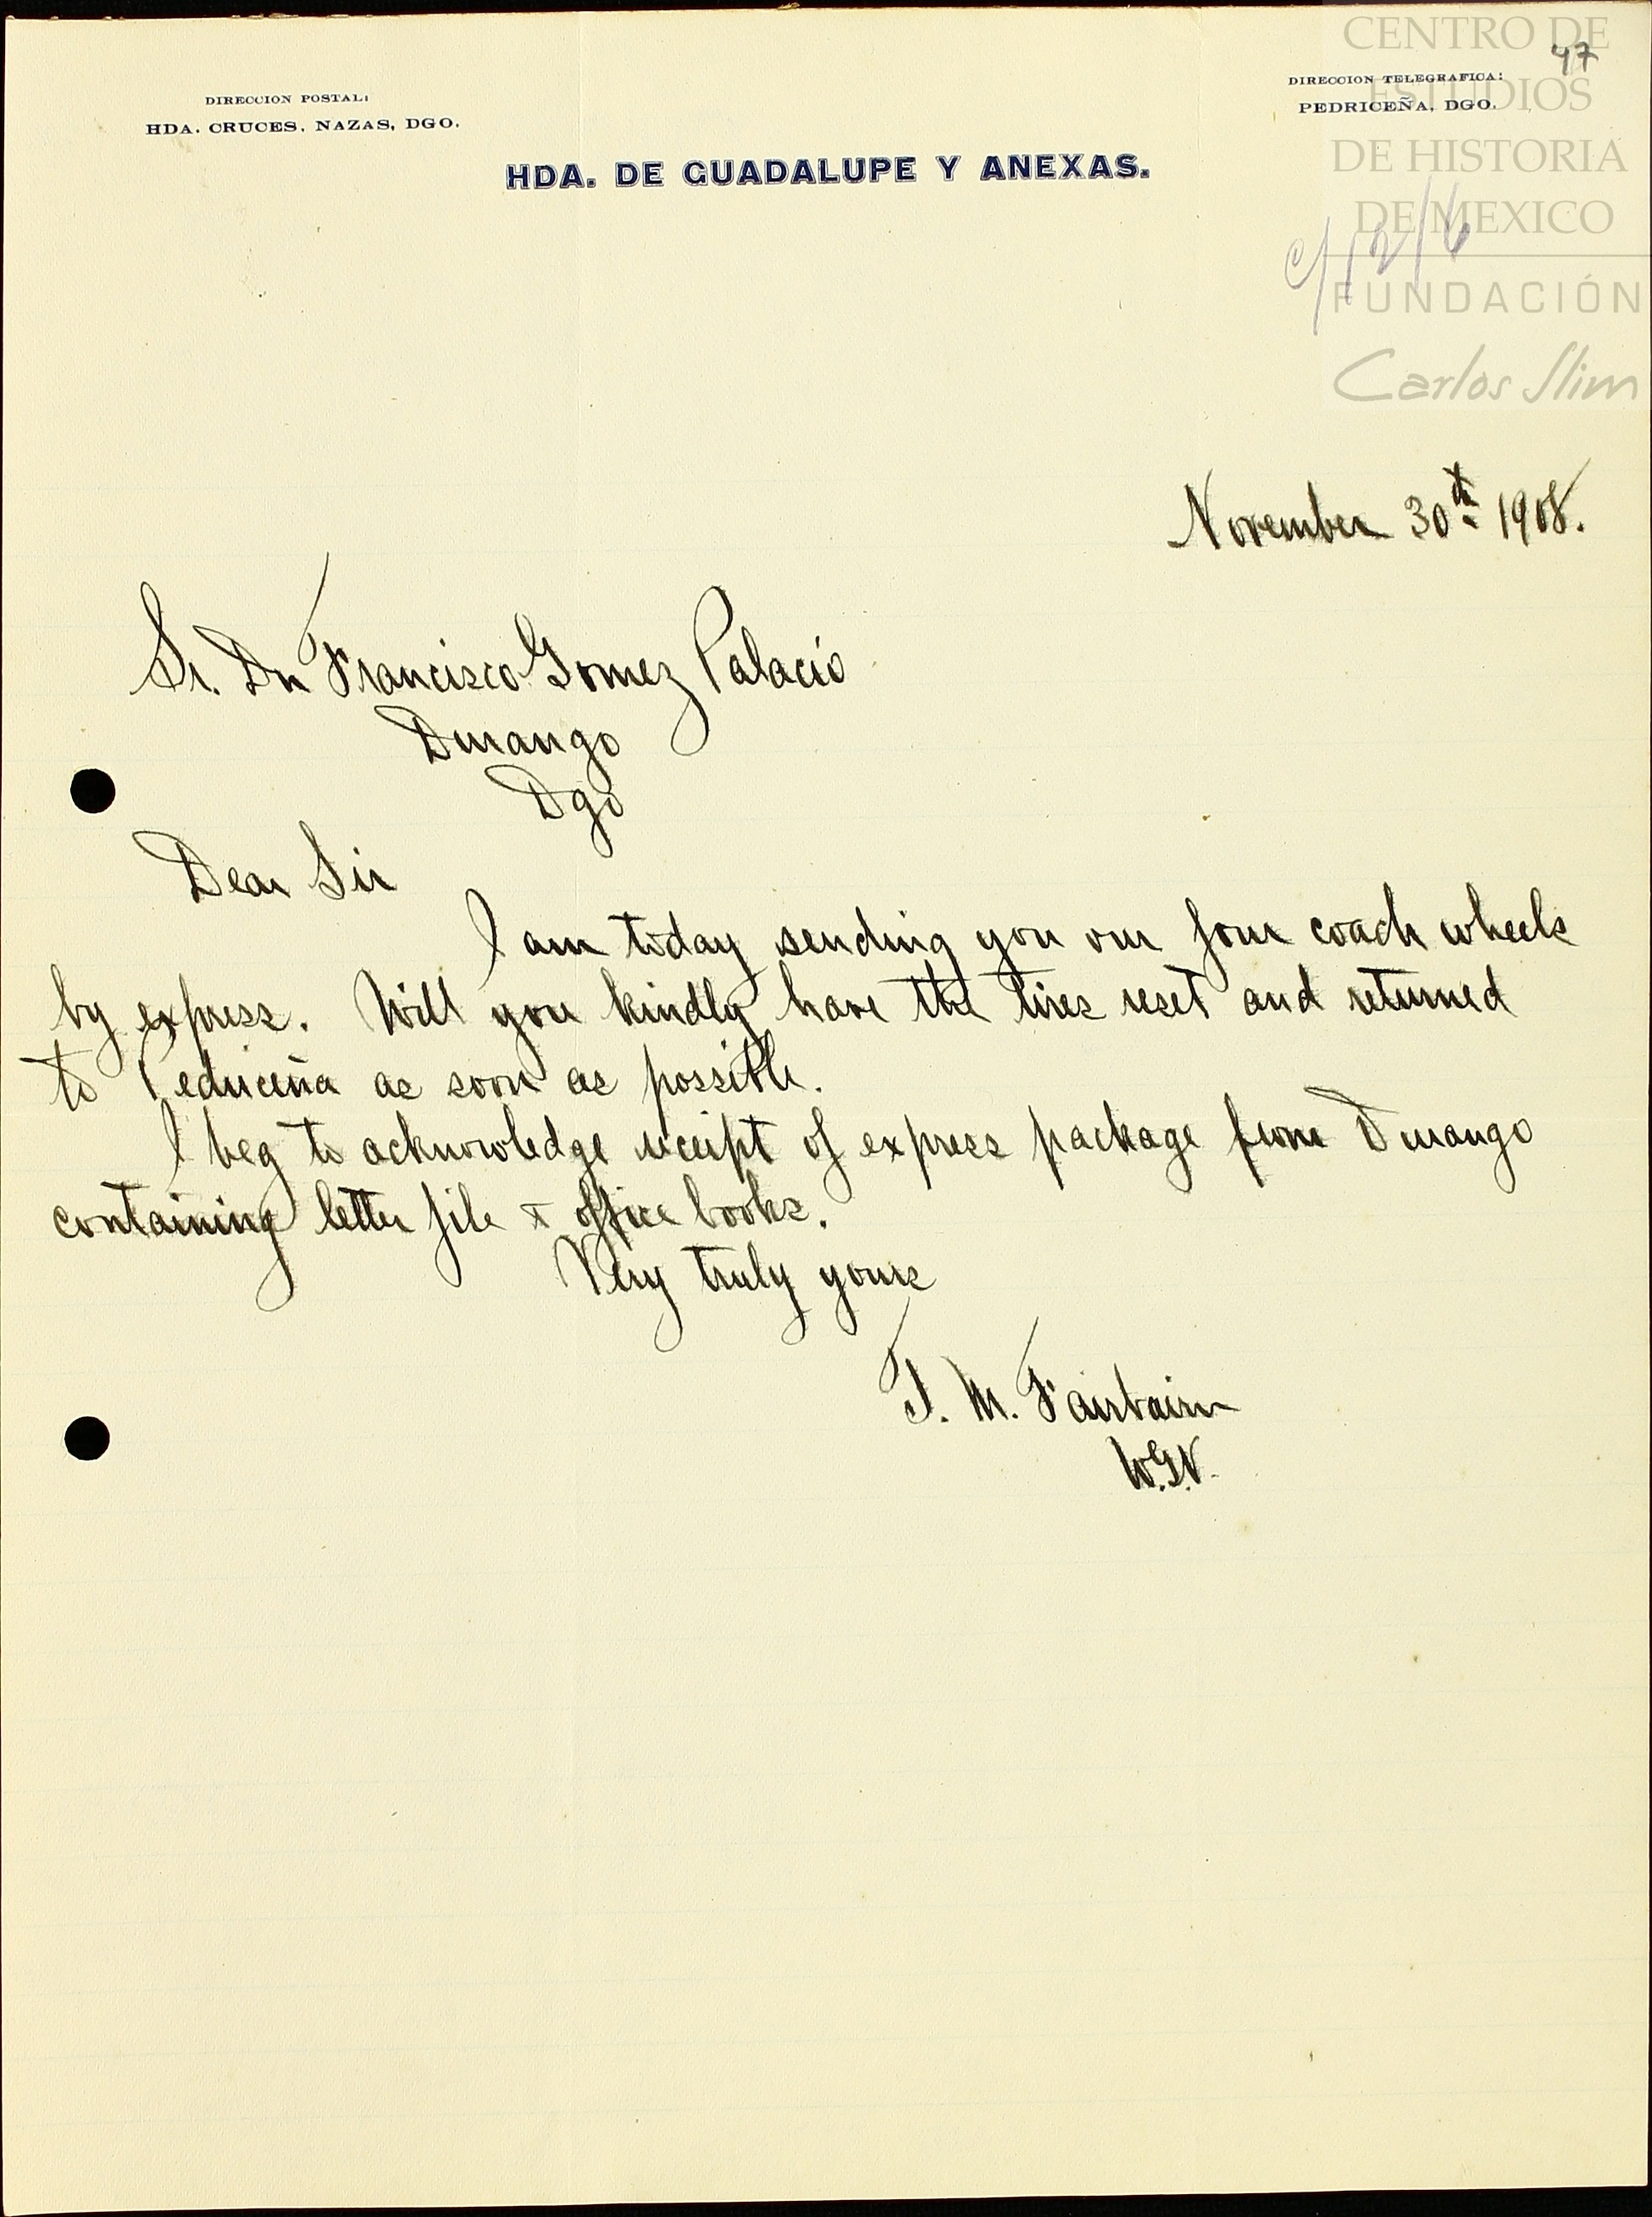 CENTRO DE
ESTUDIOS
DE HISTORIA
DE MEXICO
FUNDACIÓN
Carlos Slim
47
DIRECCION POSTAL:
HDA. CRUCES, NAZAS, DGO.
DIRECCION TELEGRAFICA:
PEDRICEÑA, DGO.
HDA. DE GUADALUPE Y ANEXAS.
c/12/6
November 30th 1908.
Sr. Dn Francisco Gomez Palacio
Durango
Dgo
Dear Sir
I am today sending you our four coach wheels
by express. Will you kindly have the tires reset and returned
to Pedriceña as soon as possible.
I beg to acknowledge receipt of express package from Durango
containing letter file & office books.
Very truly yours
T. M. Fairbairn
W.G.V.